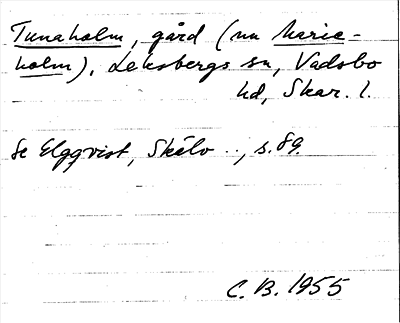 Tunaholm, gård (nu Marie-
holm), Leksbergs sn, Vadsbo
hd, Skar. l.
Se Elgqvist, Skälv .., s. 89.
C. B. 1955